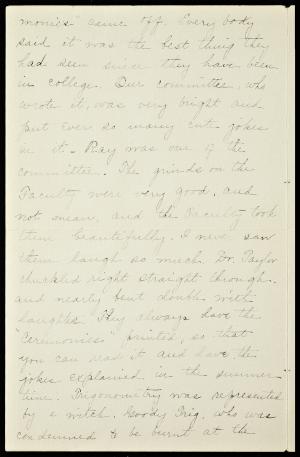 monies" came off. Every body
said it was the best thing they
had seen since they have been
in college. Our committee, who
wrote it, was very bright and
put ever so many cute jokes
in it. Ray was one of the
committee. The grinds on the
Faculty were very good, and
not mean, and the Faculty took
them beautifully. I never saw
them laugh so much. Dr. Taylor
chuckled right straight through
and nearly bent double with
laughter. They always have the
"Ceremonies" printed, so that
you can read it and have the
jokes explained in the summer
time. Trigonometry was represented
by a witch, Goody Trig, who was
condemned to be burnt at the